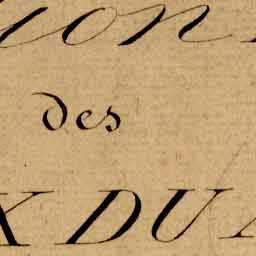 ion
des
X DU